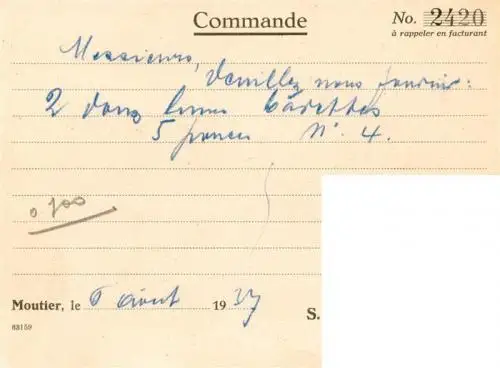 Commande
No. 2420
à rappeler en facturant
Messieurs,
Veuillez nous fournir:
2 douz limes barettes
5 pouces N° 4.
0 700
Moutier, le 6 Août 1937
S.
83159